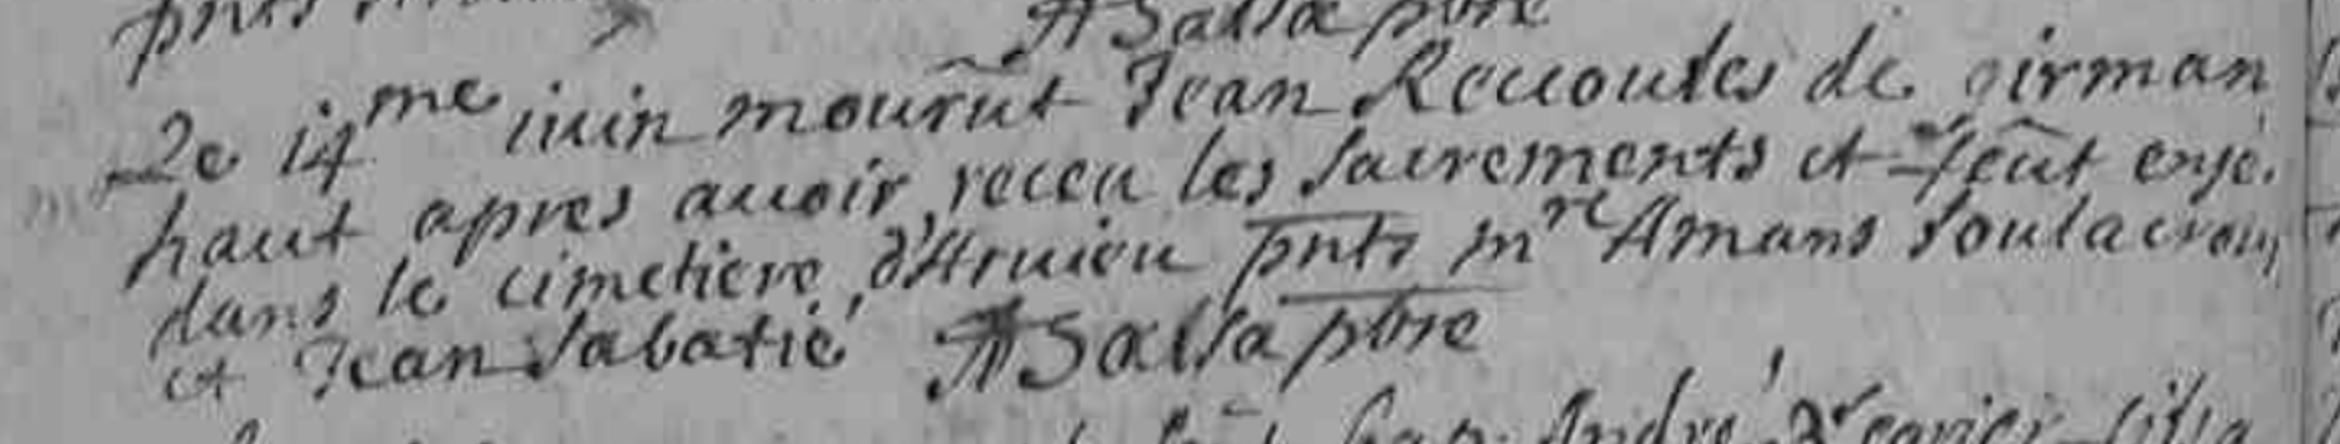 pnts
A Balsa pbre
Le 14me iuin mourut Jean Recoules de girman
haut apres auoir receu les sacrements et feut ense.
dans le cimetiere d'Aruieu pnts mre Amans Soulacroup
et Jean Sabatié A Balsa pbre
André